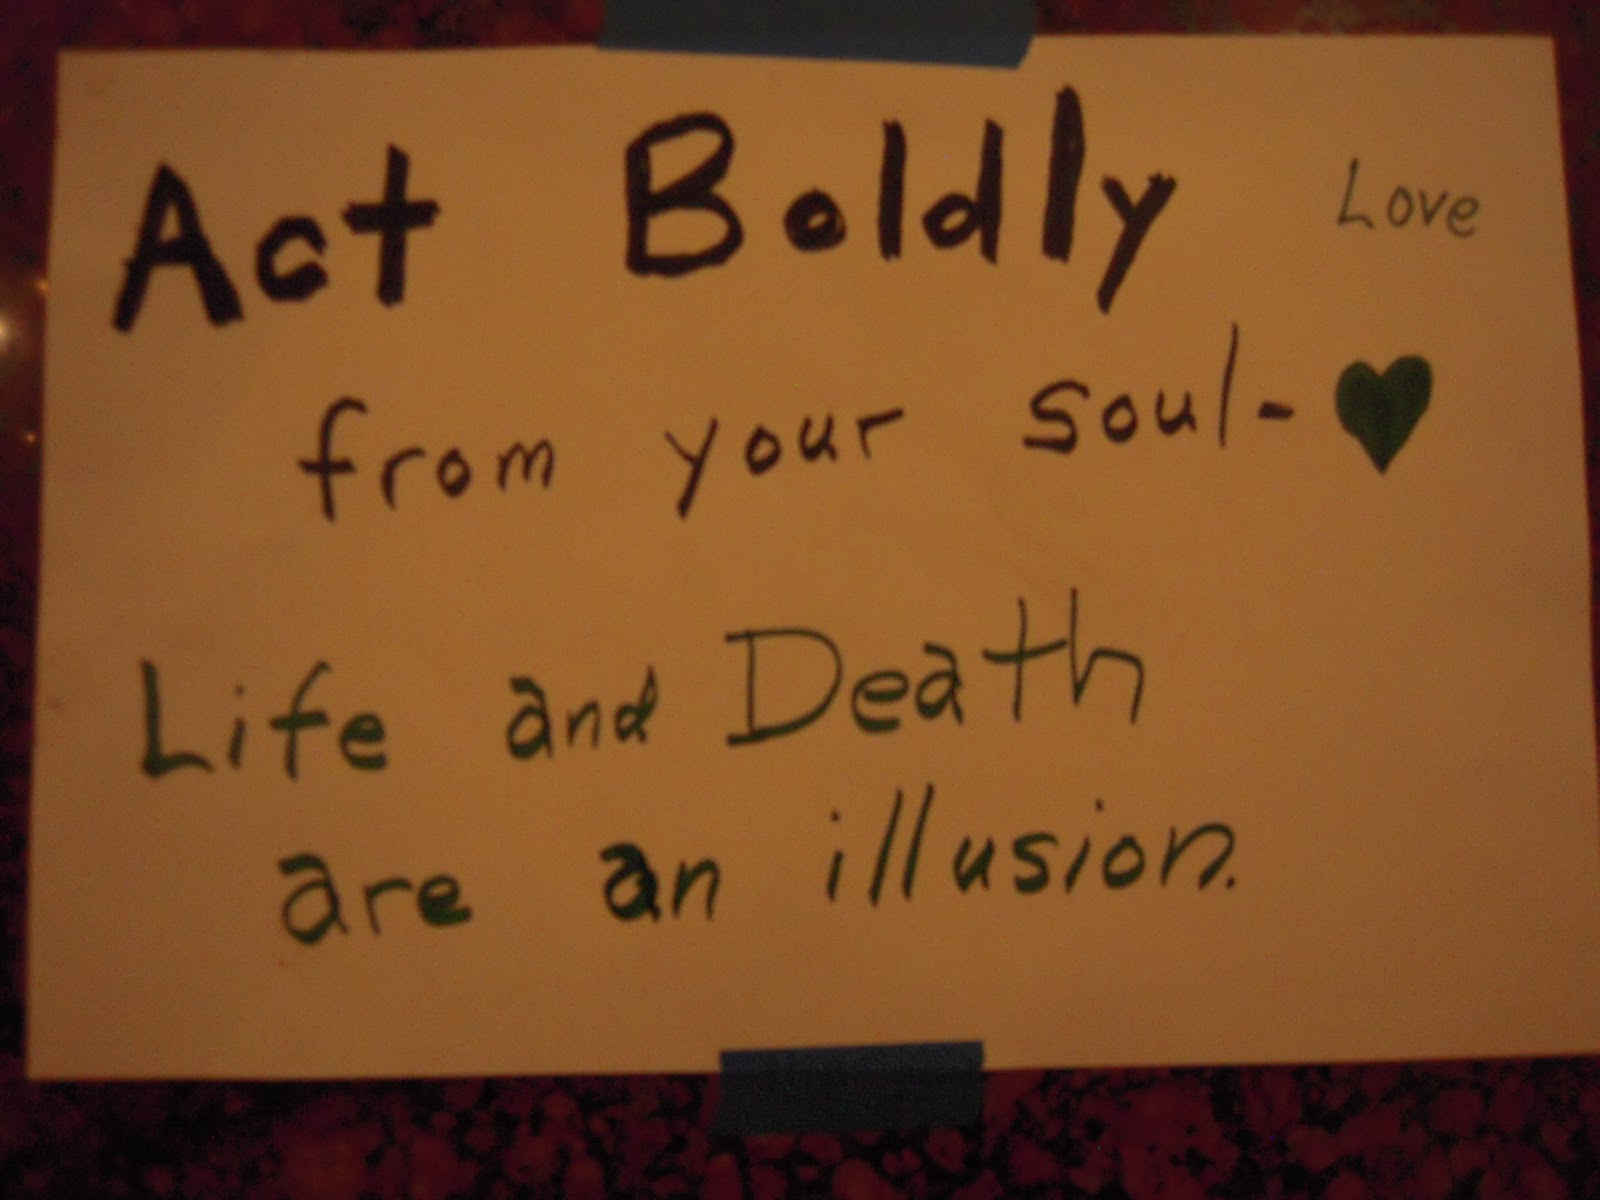 Act Boldly Love
from your soul-♥
Life and Death
are an illusion.